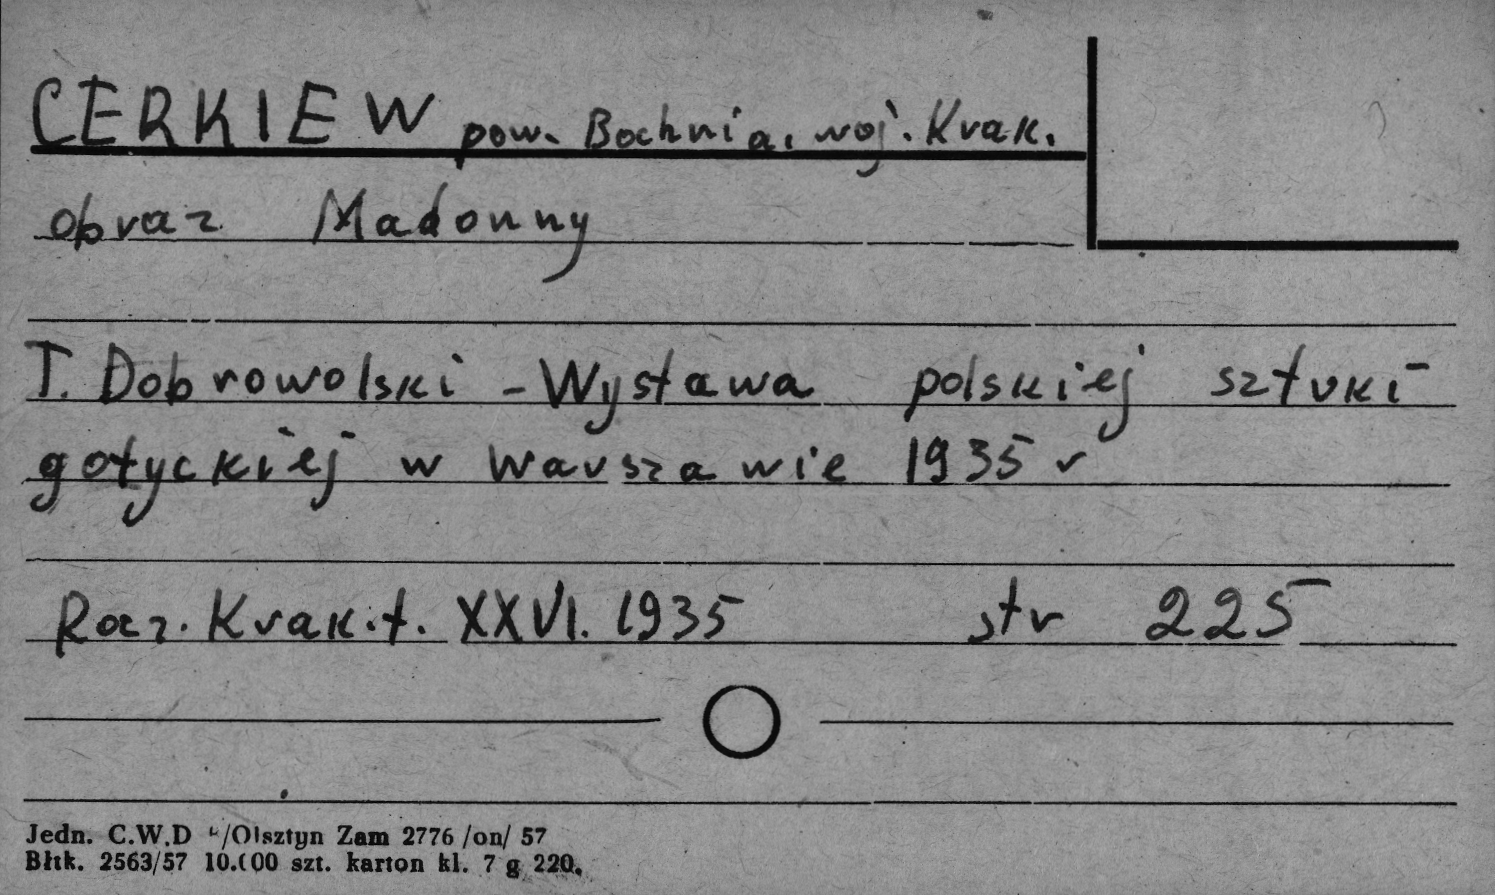 CERKIEW pow. Bochnia, woj. Krak.
obraz Madonny
T. Dobrowolski - Wystawa polskiej sztuki
gotyckiej w Warszawie 1935 r
Rocz. Krak. t. XXVI. 1935 str 225
Jedn. C.W.D /Olsztyn Zam 2776 /on/ 57
Błtk. 2563/57 10.000 szt. karton kl. 7 g 220.